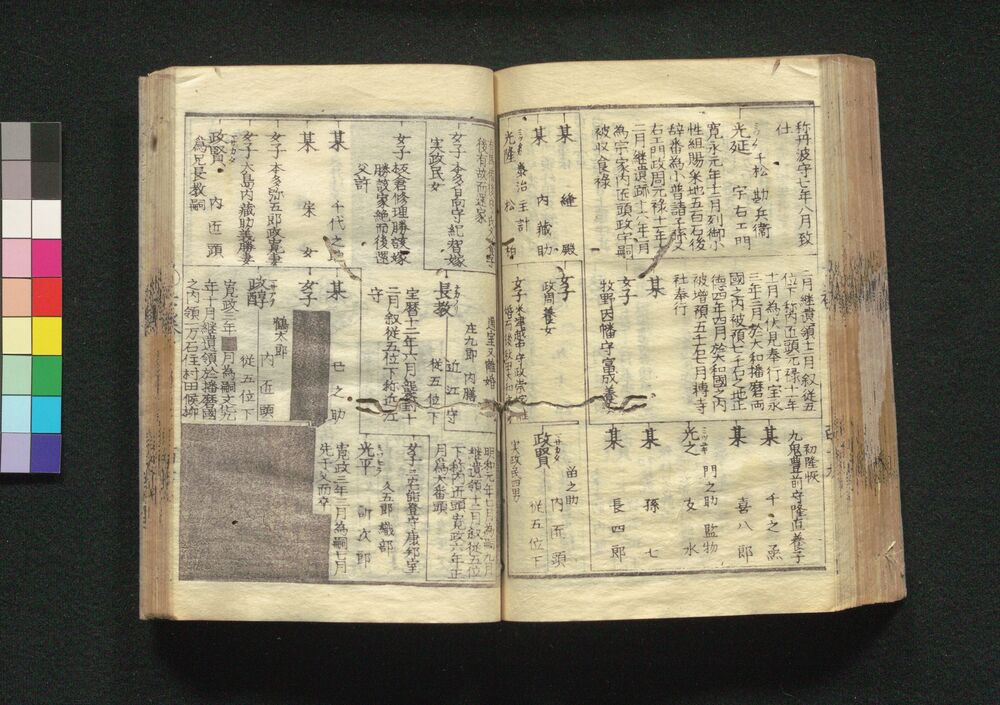 称丹波守七年八月致
仕
光延
千松 勘兵衛
宇右エ門
寛永元年十二月列御小
性組賜采地五百石後
辞番為小普請子称又
右エ門政周元禄十一年
二月継遺跡十八年二月
為宗家内匠頭政守嗣
被収食禄
某 縫殿
某 内蔵助
光隆 松
泰治 主計
二月継遺領十二月叙従五
位下称内匠頭元禄十一年
十月為伏見奉行宝永
三年三月於大和播磨両
国之内被増領七千石正
徳四年四月於大和国之内
被増領五千石七月轉寺
社奉行
某
女子
牧野因幡守富成養女
女子
政周養女
初隆恢
九鬼豊前守隆直養子
某 千之丞
某 喜八郎
光之 門之助 監物
女水
某 孫七
某 長四郎
政賢 苗之助
内匠頭
従五位下
実政民四男
後有故而還家
女子 本多日向守紀智嫁
実政民女
女子 板倉修理勝該嫁
勝該家絶而後還
父許
某 千代之
某 宋女
女子 本多弥五郎政寛妻
女子 大島内蔵助義勝妻
政賢 内匠頭
為兄長教嗣
還室又離婚
庄九郎 内膳
長教 近江守
従五位下
宝暦十二年六月襲室十
二月叙従五位下称近江
守
某 巳之助
女子
鶴太郎
政醇 内匠頭
従五位下
寛政三年 月為嗣文化
年十月継遺領於播磨國
之内領一万石住村田候柳
明和元年七月為嗣九月
継遺領十二月叙従五位
下称内匠頭寛政六年正
月為大番頭
女子 三宅能登守康邦室
久五郎 織部
光平 訴次郎
寛政三年二月為嗣七月
先于父而卒